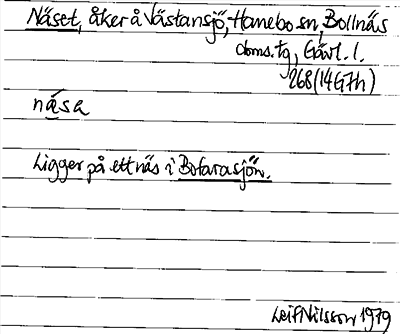 Näset, åker å Västansjö, Hanebo sn, Bollnäs
doms. tg, Gävl. l.
268 (14G7h)
nä́sa
Ligger på ett näs i Bofarasjön.
Leif Nilsson 1979